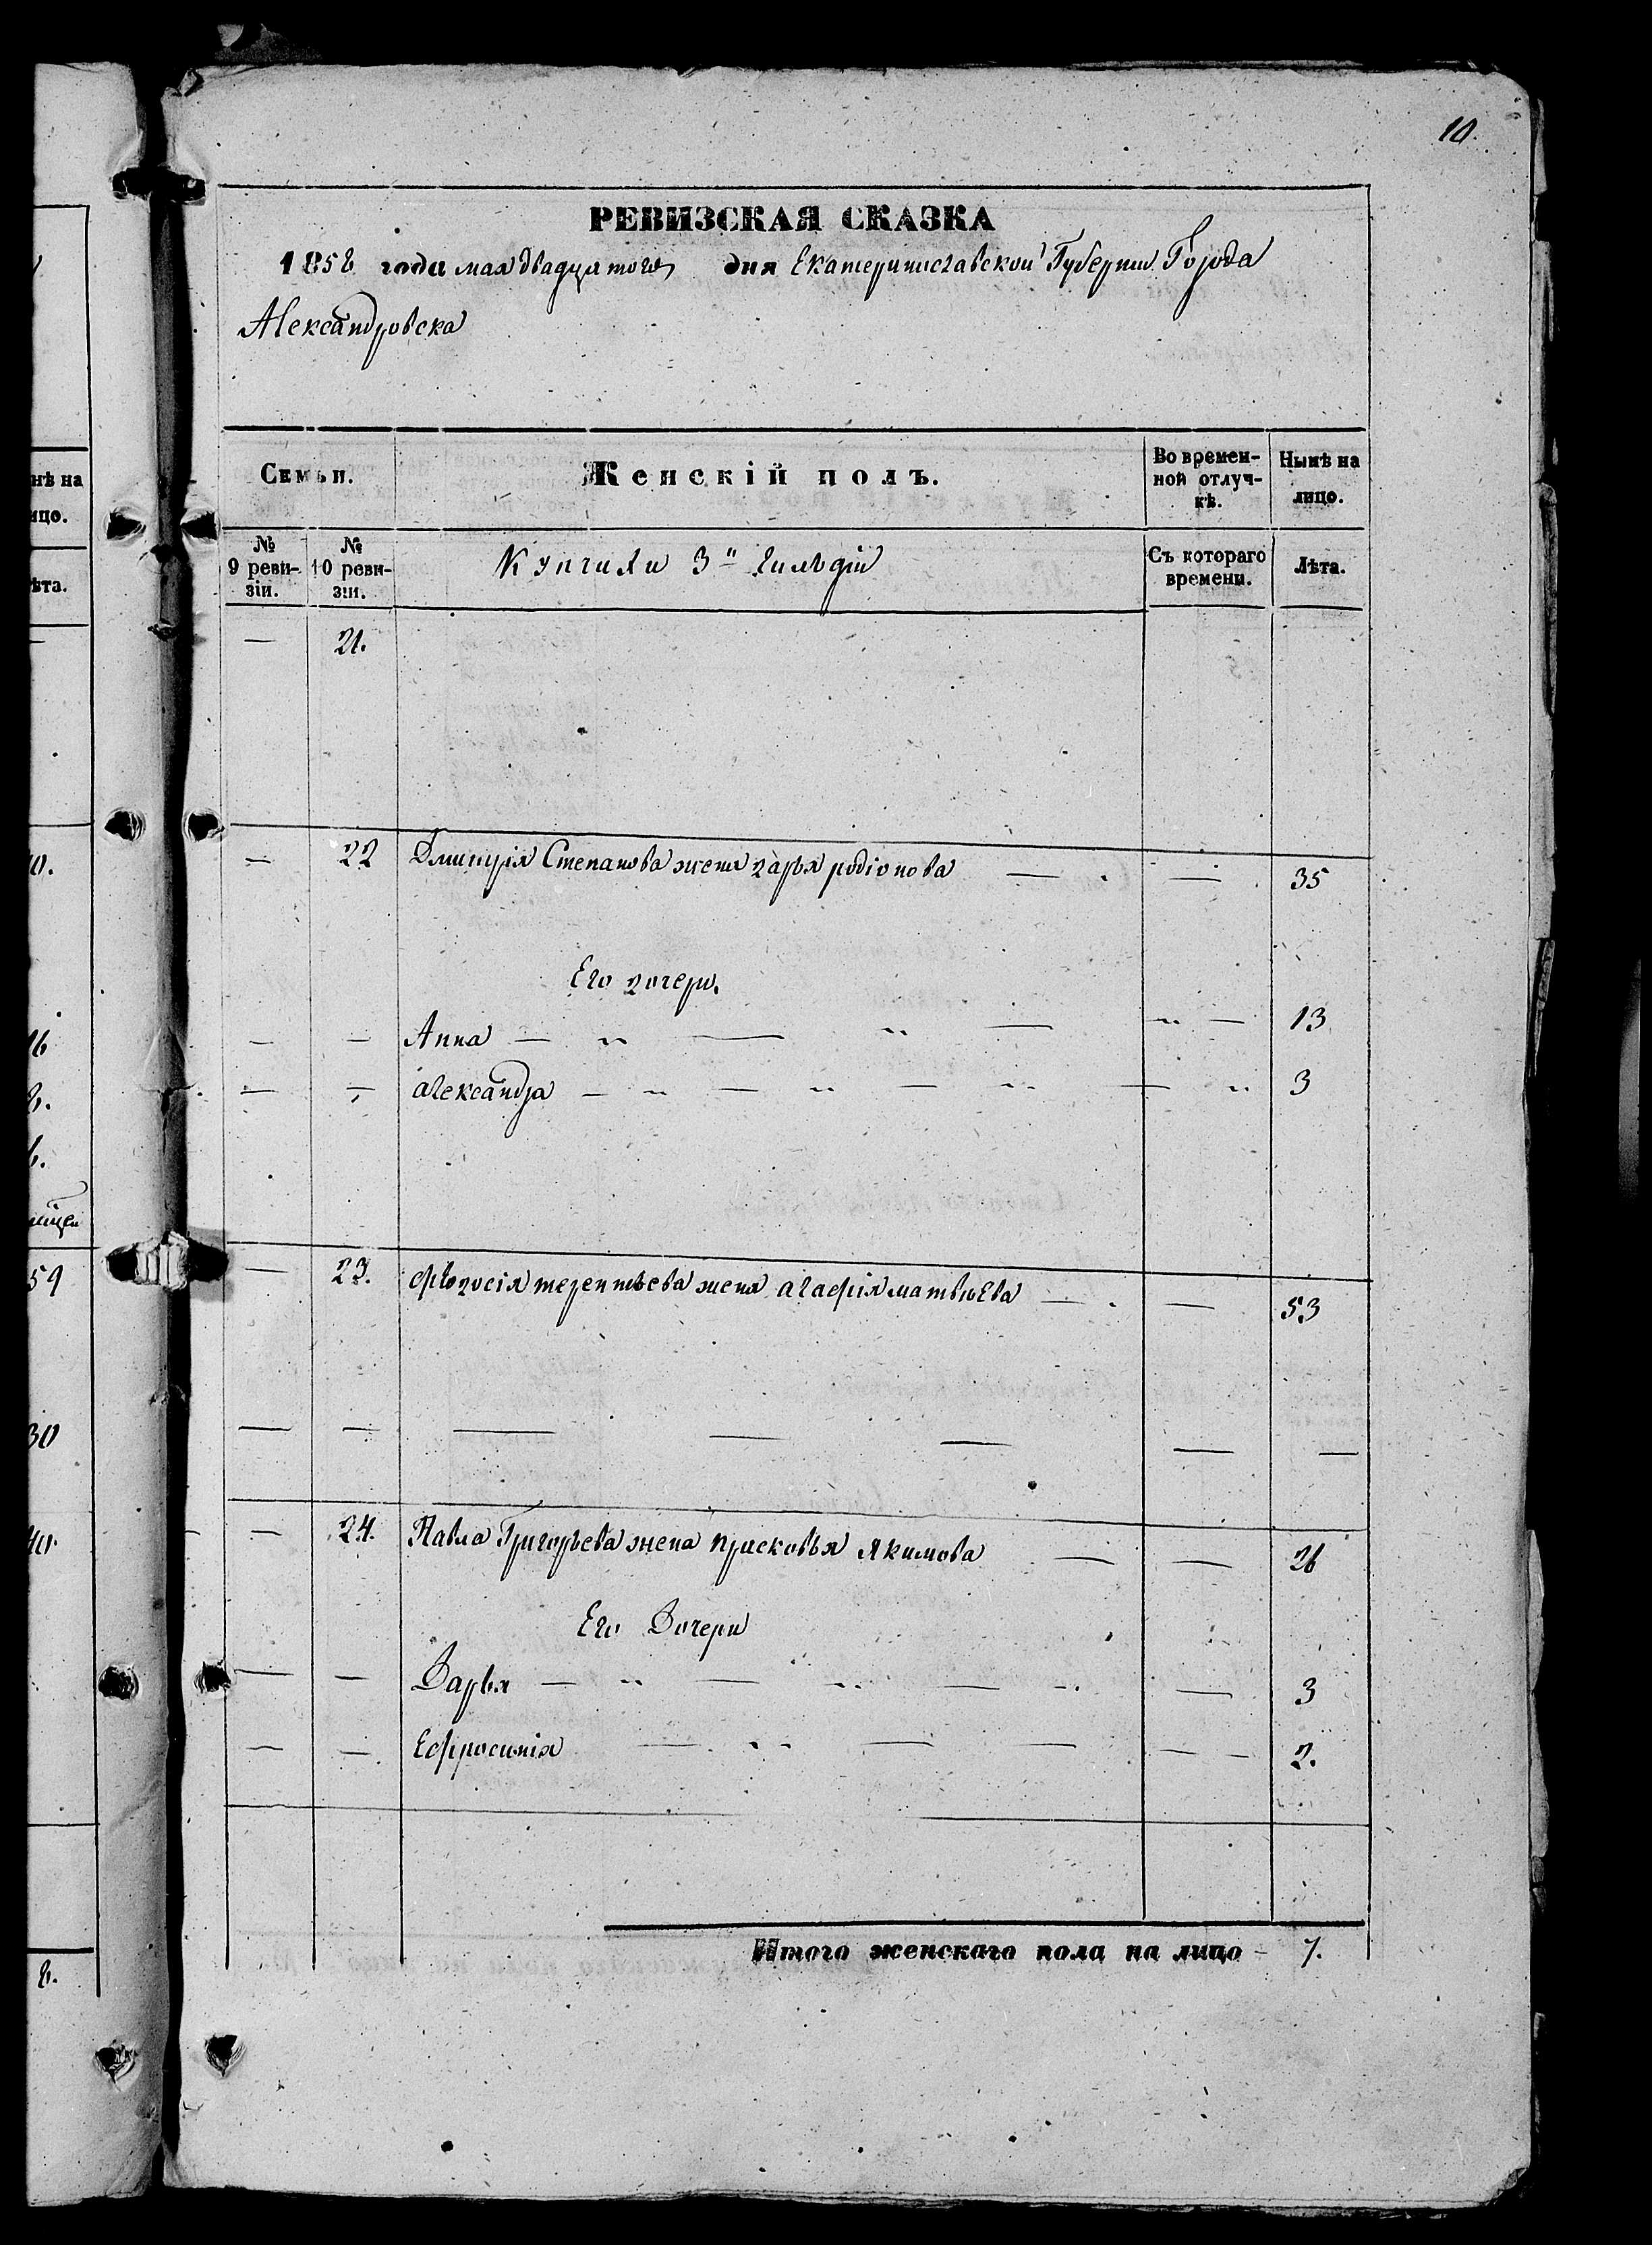 10.
РЕВИЗСКАЯ СКАЗКА
1858 года мая двадцатого дня Екатеринославской Губерніи Города
Александровска
Семьи.
Женскій полъ.
Во времен-
ной отлуч-
кѣ.
Нынѣ на
лицо.
№
9 реви-
зіи.
№
10 реви-
зіи.
Купчихи 3й гильдіи
Съ котораго
времени.
Лѣта.
— 21.
— 22 Дмитрія Степанова жена дарья родіонова — — 35
Его дочери.
— — Анна — — — — 13
— — александра — — — — 3
— 23. фѣодосія терентьева жена агафія матвѣева — — 53
— — — — — — —
— 24. Павла Григорьева жена прасковья Якимова — — 26
Его Дочери
— — Дарья — — — — 3
— — Ефросинія — — — — — 2.
Итого женскаго пола на лицо - 7.
нѣ на
ицо.
ѣта.
59
30
40.